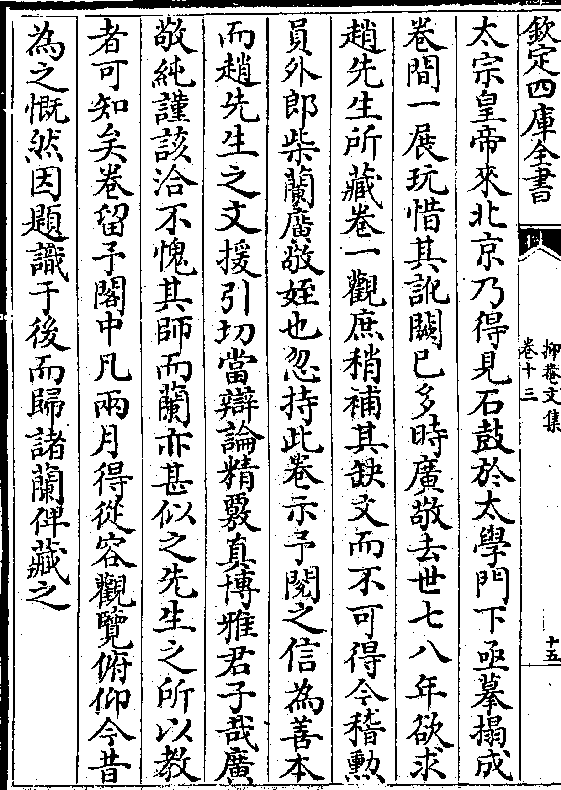 欽定四庫全書
抑菴文集
卷十三
十五
太宗皇帝來北京乃得見石鼓於太學門下亟摹搨成
卷間一展玩惜其訛闕已多時廣敬去世七八年欲求
趙先生所藏卷一觀庶稍補其缺文而不可得今稽勲
員外郎柴蘭廣敬姪也忽持此卷示予閱之信為善本
而趙先生之文援引切當辯論精覈真博雅君子哉廣
敬純謹該洽不愧其師而蘭亦甚似之先生之所以教
者可知矣卷留予閣中凡兩月得從容觀覽俯仰今昔
為之慨然因題識于後而歸諸蘭俾藏之